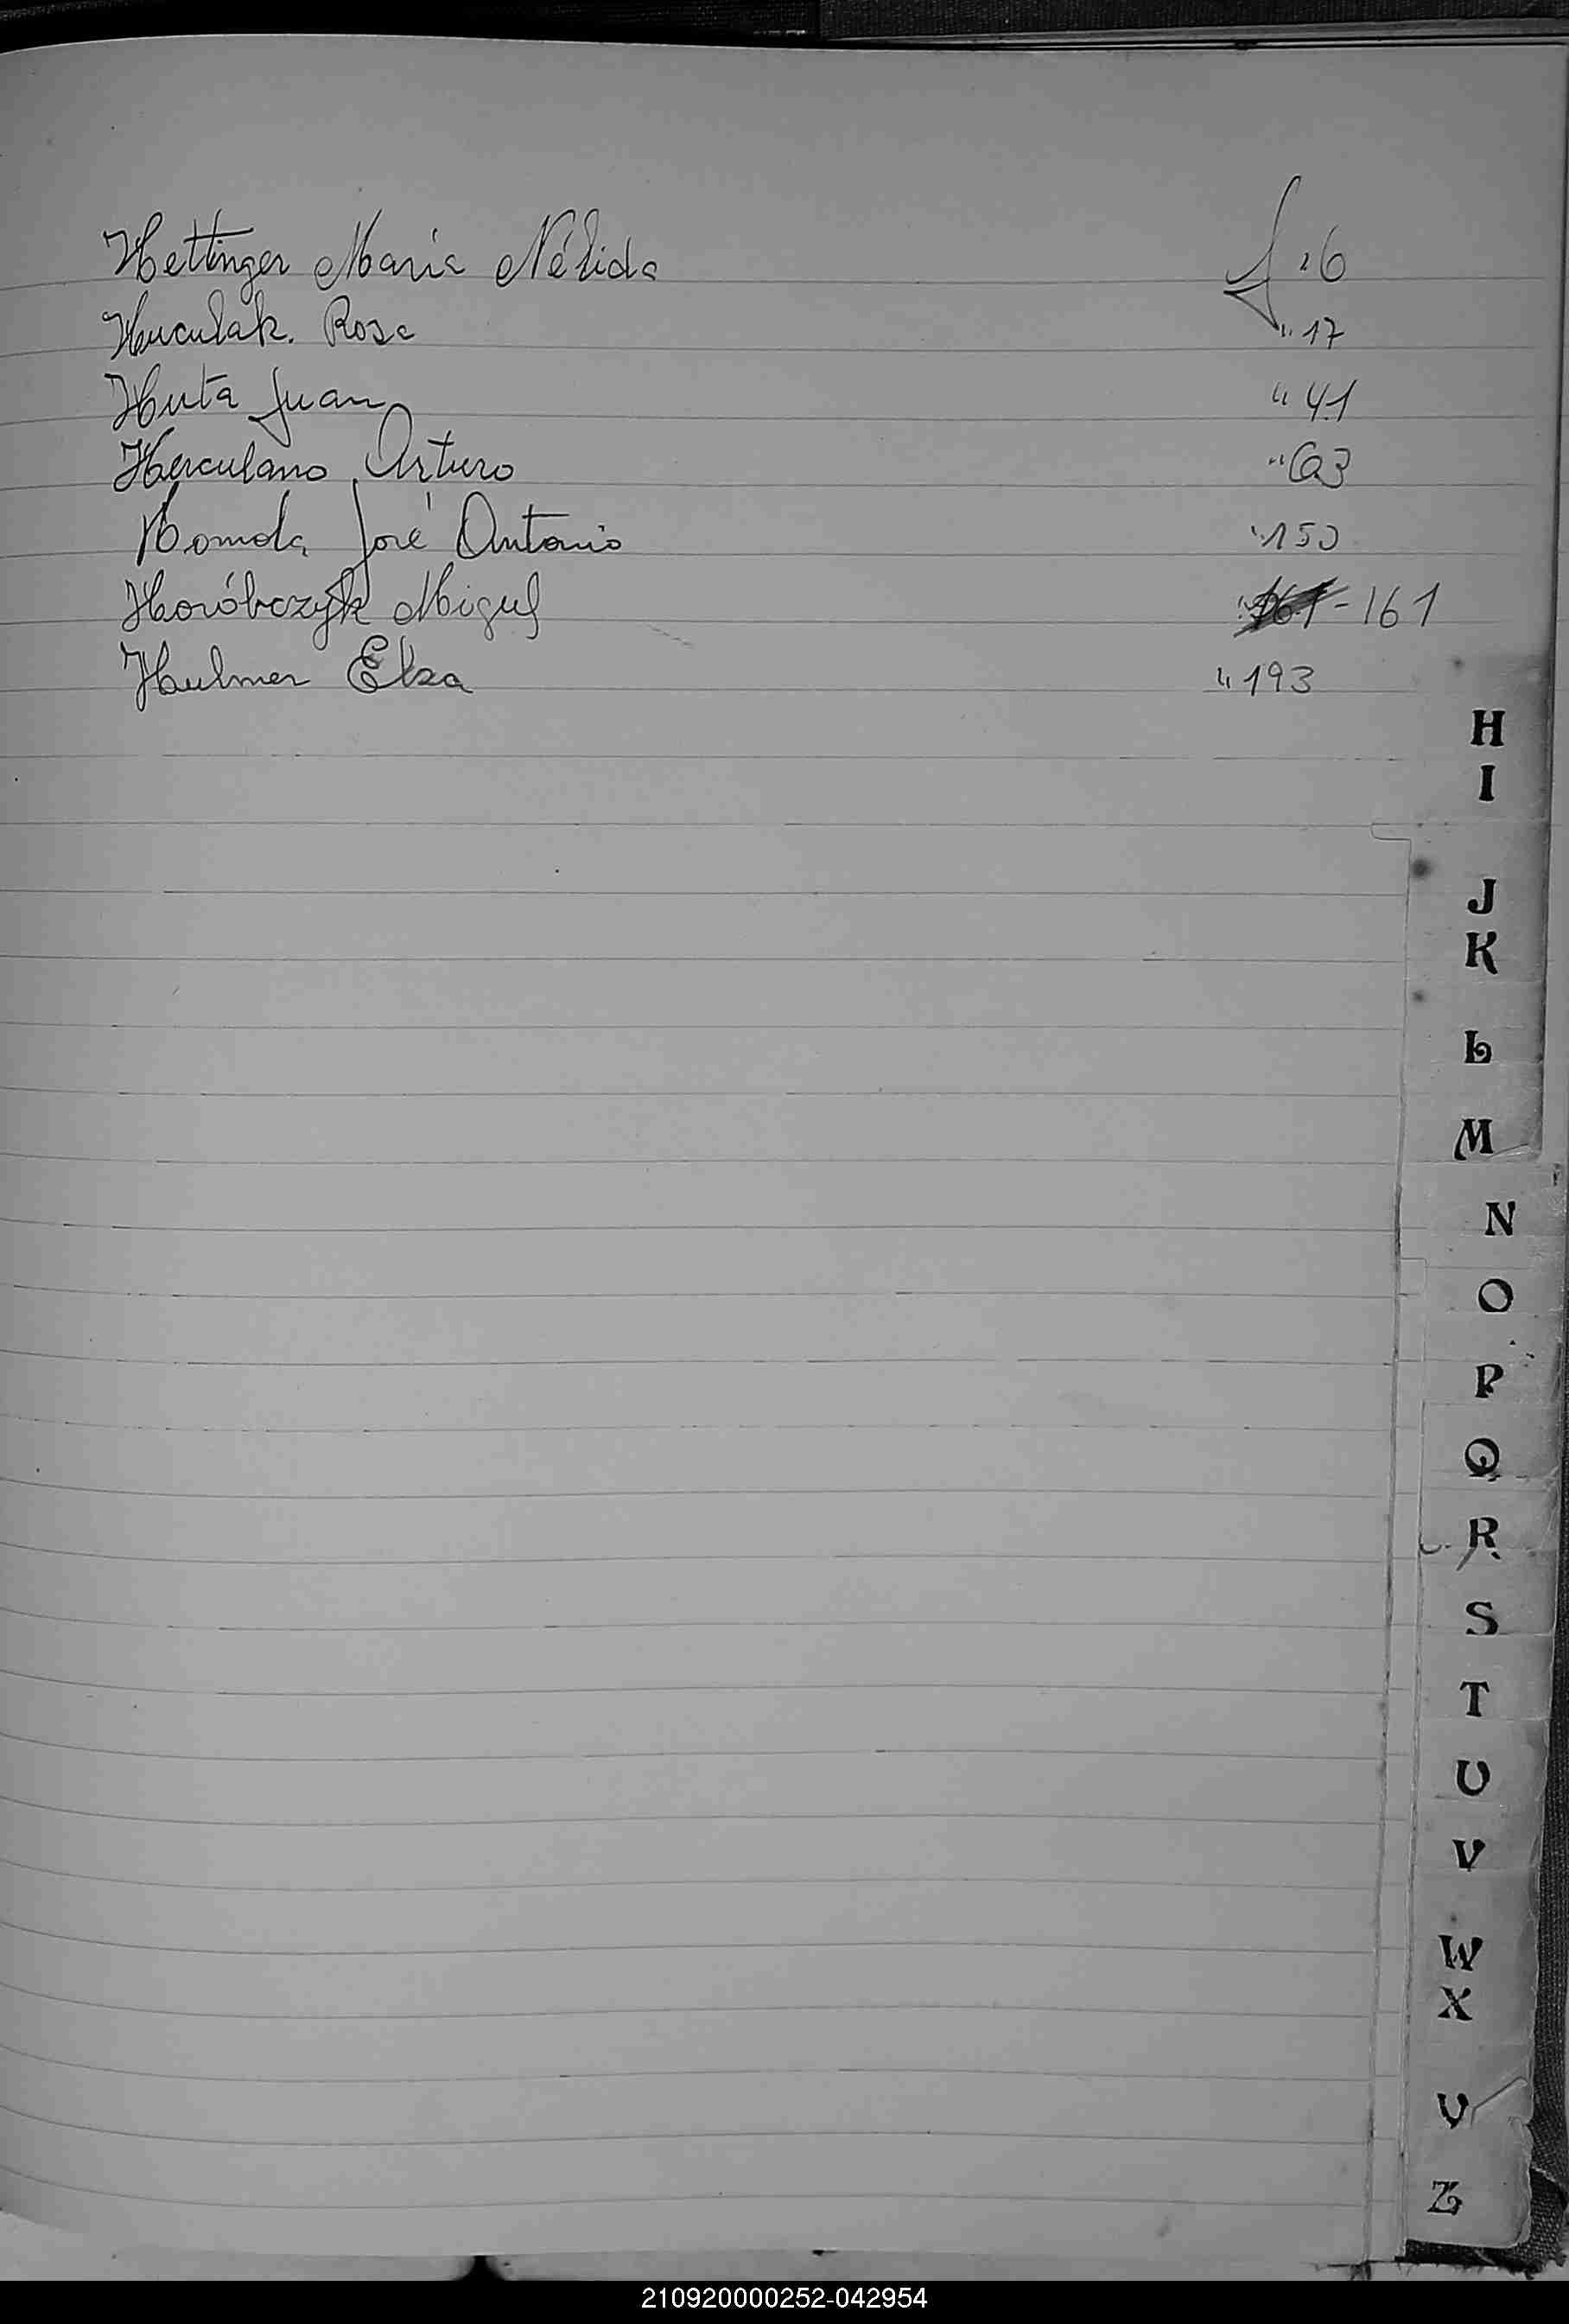 Hettinger María Nélida f 16
Huculak. Rosa " 17
Huta Juan " 41
Herculano Arturo " 63
Homola José Antonio " 150
Horóbczyk Miguel 161 - 161
Hulmer Elsa " 193
H
I
J
K
L
M
N
O
P
Q
R
S
T
U
V
W
X
Y
Z
210920000252-042954